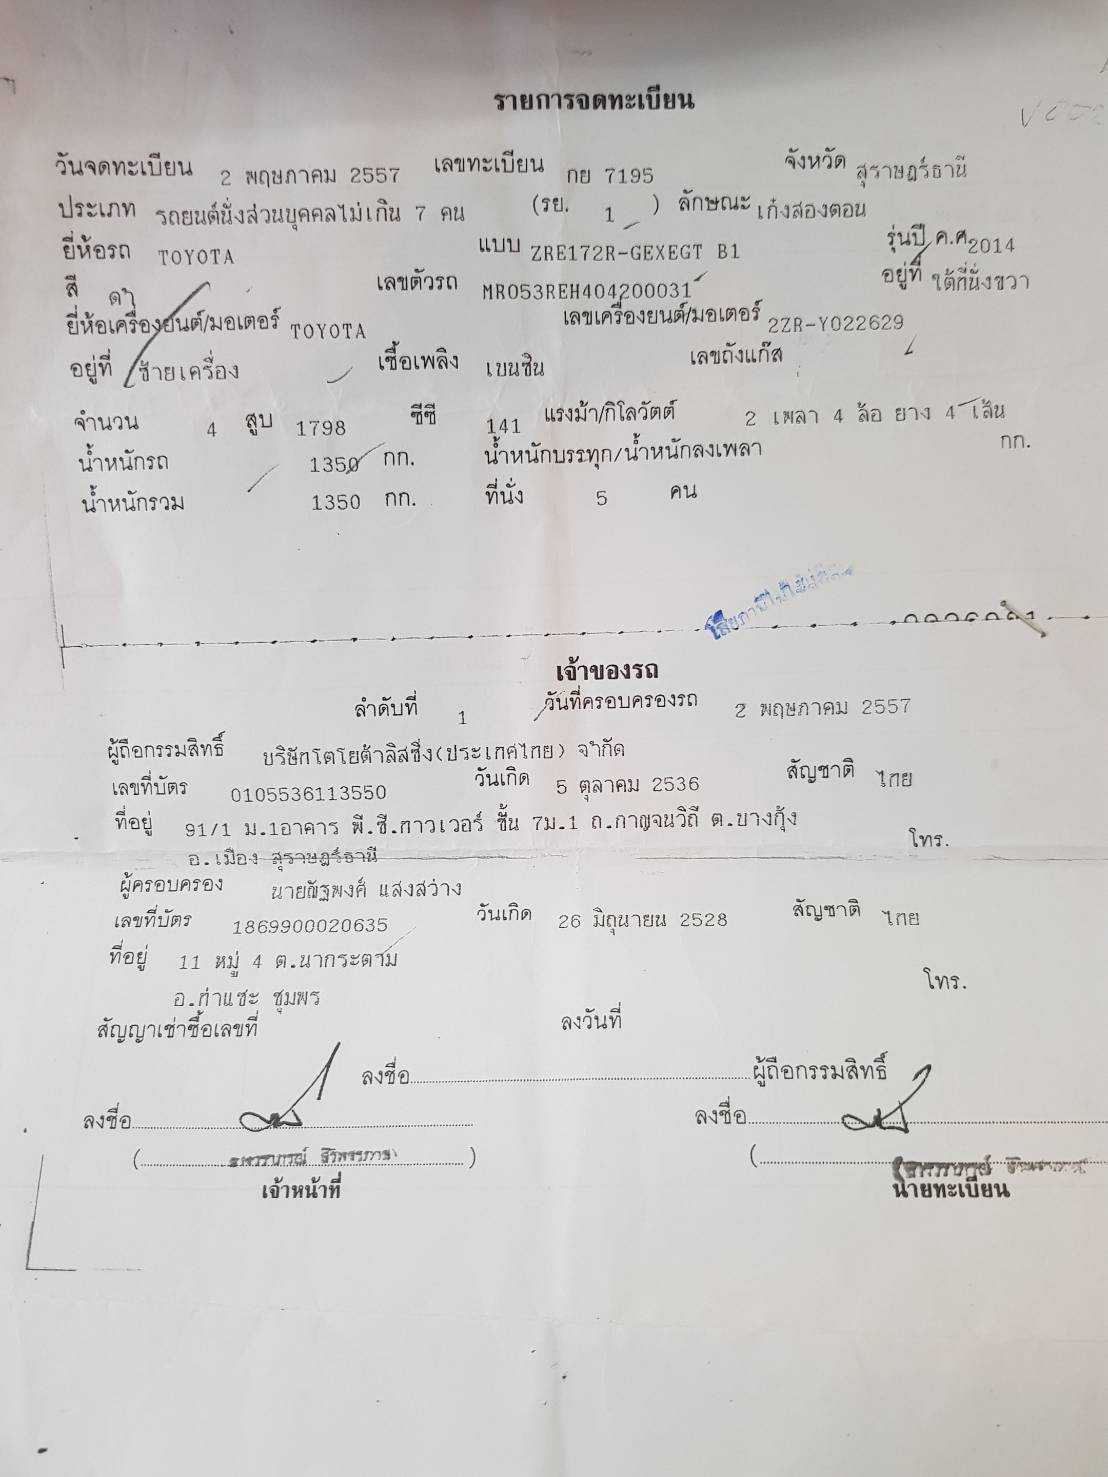 รายการจดทะเบียน
วันจดทะเบียน 2 พฤษภาคม 2557 เลขทะเบียน กย 7195 จังหวัด สุราษฎร์ธานี
ประเภท รถยนต์นั่งส่วนบุคคลไม่เกิน 7 คน (รย. 1 ) ลักษณะ เก๋งสองตอน
ยี่ห้อรถ TOYOTA แบบ ZRE172R-GEXEGT B1 รุ่นปี ค.ศ. 2014
สี ดำ เลขตัวรถ MR053REH404200031 อยู่ที่ ใต้ที่นั่งขวา
ยี่ห้อเครื่องยนต์/มอเตอร์ TOYOTA เลขเครื่องยนต์/มอเตอร์ 2ZR-Y022629
อยู่ที่ ซ้ายเครื่อง เชื้อเพลิง เบนซิน เลขถังแก๊ส
จำนวน 4 สูบ 1798 ซีซี 141 แรงม้า/กิโลวัตต์ 2 เพลา 4 ล้อ ยาง 4 เส้น
น้ำหนักรถ 1350 กก. น้ำหนักบรรทุก/น้ำหนักลงเพลา กก.
น้ำหนักรวม 1350 กก. ที่นั่ง 5 คน
เจ้าของรถ
ลำดับที่ 1 วันที่ครอบครองรถ 2 พฤษภาคม 2557
ผู้ถือกรรมสิทธิ์ บริษัทโตโยต้าลิสซิ่ง(ประเทศไทย) จำกัด
เลขที่บัตร 0105536113550 วันเกิด 5 ตุลาคม 2536 สัญชาติ ไทย
ที่อยู่ 91/1 ม.1อาคาร พี.ซี.ทาวเวอร์ ชั้น 7ม.1 ถ.กาญจนวิถี ต.บางกุ้ง
อ.เมือง สุราษฎร์ธานี โทร.
ผู้ครอบครอง นายณัฐพงศ์ แสงสว่าง
เลขที่บัตร 1869900020635 วันเกิด 26 มิถุนายน 2528 สัญชาติ ไทย
ที่อยู่ 11 หมู่ 4 ต.นากระตาม
อ.ท่าแซะ ชุมพร โทร.
สัญญาเช่าซื้อเลขที่ ลงวันที่
ลงชื่อ ผู้ถือกรรมสิทธิ์
ลงชื่อ ลงชื่อ
( ) (
เจ้าหน้าที่ นายทะเบียน